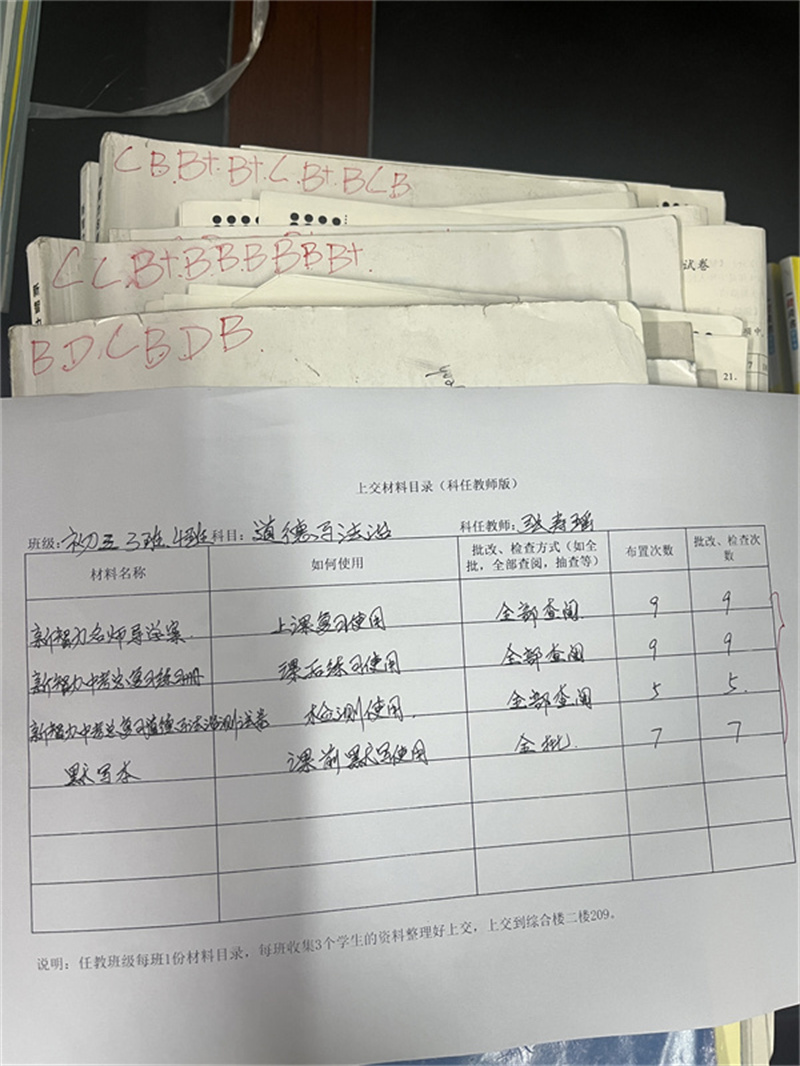 C B B+ B+ C B+ B C B
C C B+ B B B B B B+
试卷
B D C B D B
21.
上交材料目录（科任教师版）
班级：初三3班.4班 科目：道德与法治 科任教师：张寿瑶
材料名称 如何使用 批改、检查方式（如全批，全部查阅，抽查等） 布置次数 批改、检查次数
新智力名师导学案 上课复习使用 全部查阅 9 9
新智力中考总复习练习册 课后练习使用 全部查阅 9 9
新智力中考总复习道德与法治测试卷 检测使用 全部查阅 5 5
默写本 课前默写使用 全批 7 7
说明：任教班级每班1份材料目录，每班收集3个学生的资料整理好上交，上交到综合楼二楼209。